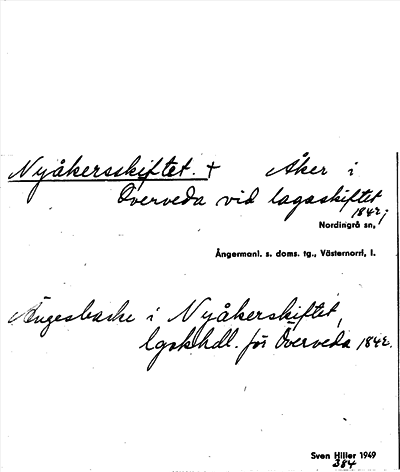 Nyåkersskiftet. + Åker i
Överveda vid lagaskiftet
1842;
Nordingrå sn,
Ångermanl. s. doms. tg., Västernorrl, l.
i Nyåkerskiftet,
lgskhdl. för Överveda 1842.
Sven Hiller 1949
384